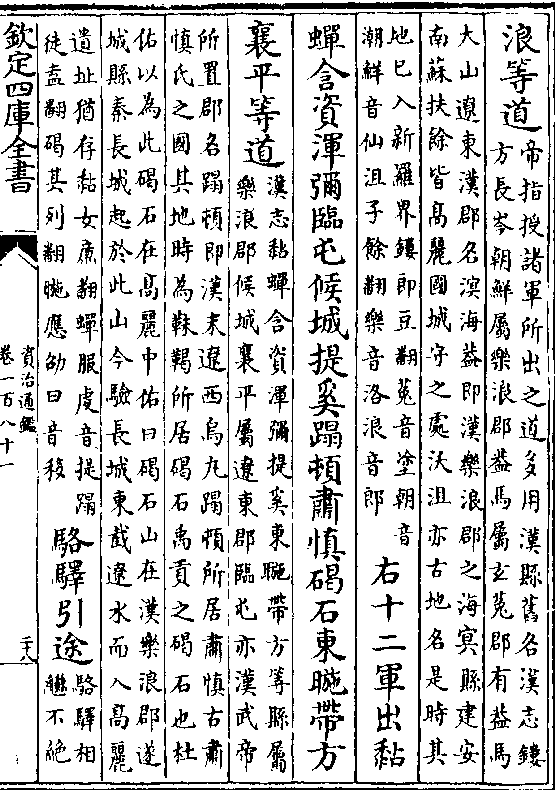 浪等道帝指授諸軍所出之道多用漢縣舊名漢志鏤
方長岑朝鮮屬樂浪郡葢馬屬玄菟郡有葢馬
大山遼東漢郡名溟海葢即漢樂浪郡之海冥縣建安
南蘇扶餘皆髙麗國城守之處沃沮亦古地名是時其
地已入新羅界鏤即豆翻菟音塗朝音
潮鮮音仙沮子餘翻樂音洛浪音郎
右十二軍出黏
蟬含資渾彌臨屯候城提奚蹋頓肅慎碣石東暆帶方
襄平等道漢志黏蟬含資渾彌提奚東暆帶方等縣屬
樂浪郡候城襄平屬遼東郡臨屯亦漢武帝
所置郡名蹋頓即漢末遼西烏丸蹋頓所居肅慎古肅
慎氏之國其地時為靺鞨所居碣石禹貢之碣石也杜
佑以為此碣石在髙麗中佑曰碣石山在漢樂浪郡遂
城縣秦長城起於此山今驗長城東截遼水而入髙麗
遺址猶存黏女廉翻蟬服虔音提蹋
徒盍翻碣其列翻暆應劭曰音移
駱驛引途駱驛相
繼不絶
欽定四庫全書
資治通鑑
卷一百八十一
二十八